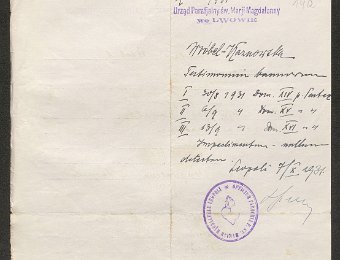 Urząd Parafjalny św. Marji Magdaleny
we LWOWIE
Wróbel-Karnowska
Testimonium bannorum
I 30/8 1931 Dom. XIV p. Pentec
II 6/9 " Dom XV " "
III 13/9 " Dom XVI " "
Impedimentum - nullum
detectum. Leopoli 7/X 1931.